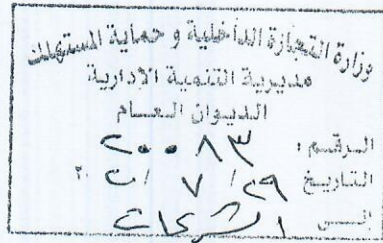 وزارة التجارة الداخلية و حماية المستهلك
مديرية التنمية الادارية
الديوان العام
الرقم : ٢٠٠٨٣
التاريخ ٢٩ / ٧ / ٢٠
الى الشركات